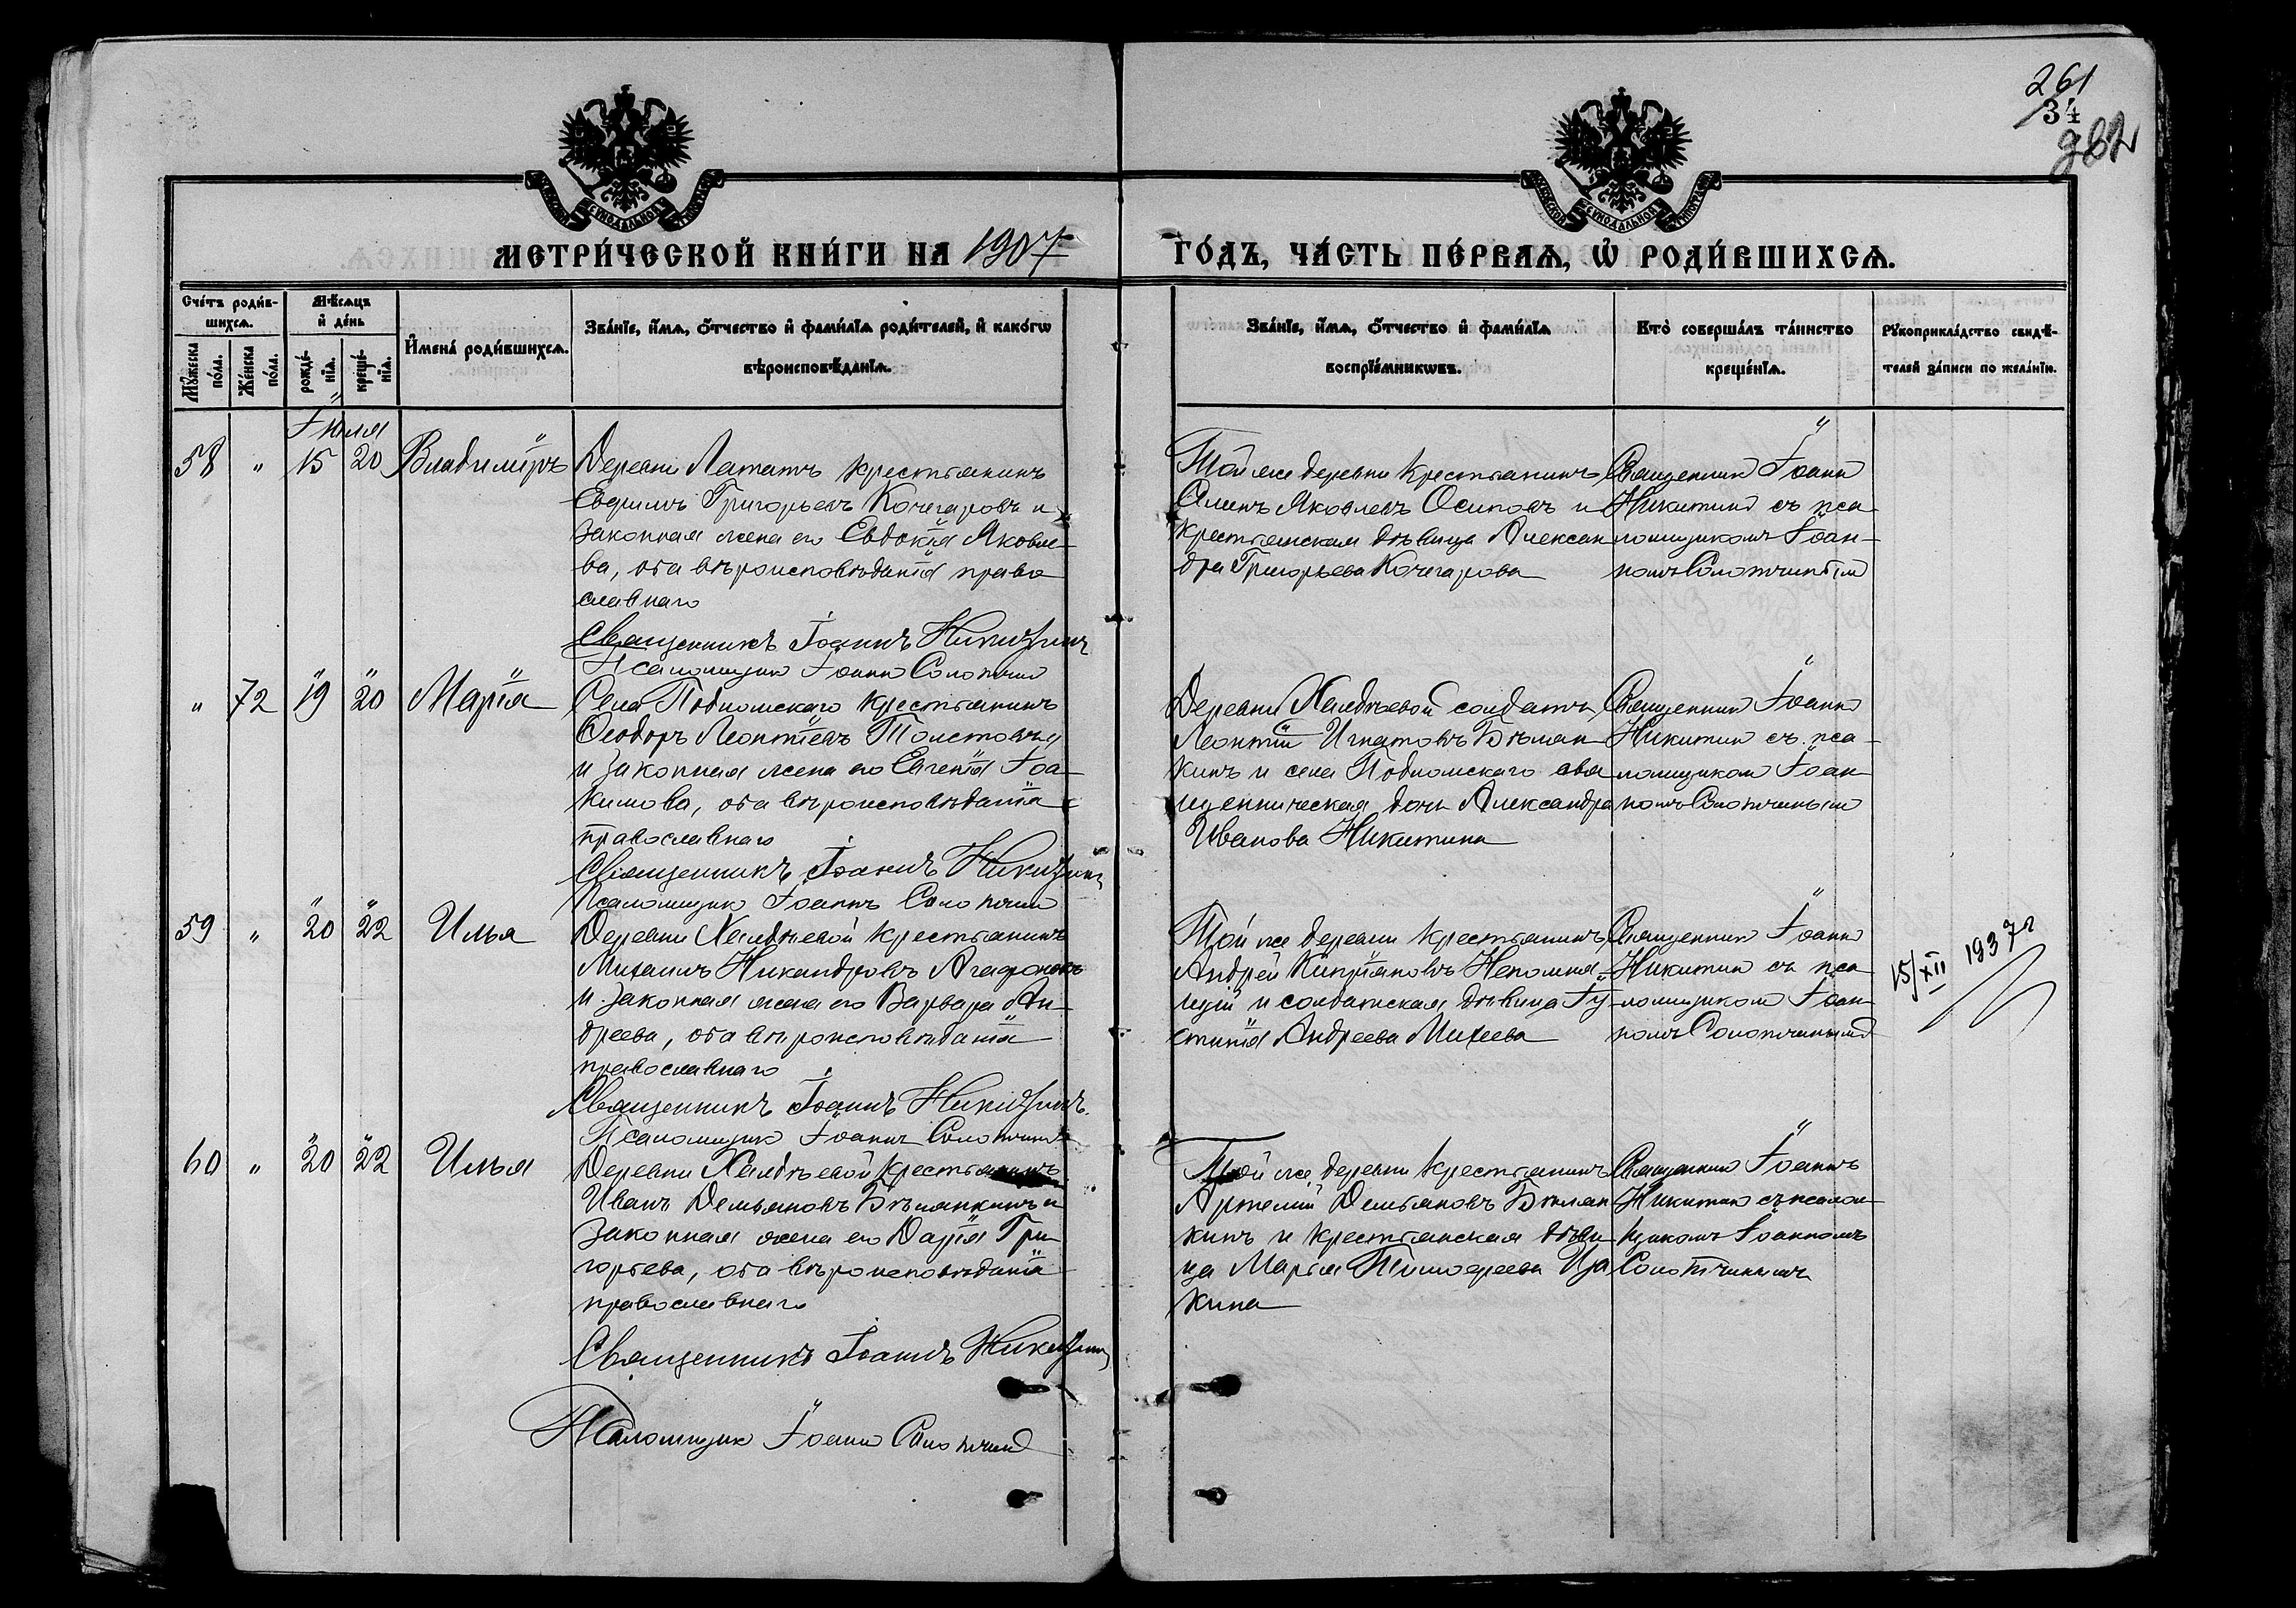 261
34
282
МЕТРИ́ЧЕСКОЙ КНИ́ГИ НА 1907
ГО́ДЪ, ЧА́СТЬ ПЕ́РВАѦ, Ѡ҆ РОДИ́ВШИХСѦ.
Сче́тъ роди́в-
шихсѧ.
Мꙋ́жеска по́ла.
Же́нска по́ла.
Мѣ́сѧцъ
и҆ де́нь
рожде́-
нїѧ.
креще́-
нїѧ.
И҆мена̀ роди́вшихсѧ.
Зва́нїе, и҆́мѧ, ѻ҆́тчество и҆ фами́лїѧ роди́телей, и҆ како́гѡ
вѣроисповѣ́данїѧ.
Зва́нїе, и҆́мѧ, ѻ҆́тчество и҆ фами́лїѧ
воспрїе́мникѡвъ.
Кто̀ соверша́лъ та́инство
креще́нїѧ.
Рꙋкоприкла́дство свидѣ́-
телей за́писи по жела́нїю.
Іюля
58 " 15 20 Владиміръ
Деревни Лататъ крестьянинъ
Ефимъ Григорьевъ Кочегаровъ и
законная жена его Евдокія Яковле-
ва, оба вѣроисповѣданія право
славнаго
Священникъ Іоаннъ Никитинъ
Псаломщикъ Іоаннъ Солотчинъ
Той же деревни крестьянинъ
Яковлевъ Осиповъ и
крестьянская дѣвица Алексан
дра Григорьева Кочегарова
Священникъ Іоаннъ
Никитинъ съ пса-
ломщикомъ Іоан-
номъ Солотчинымъ
" 72 19 20 Марія
Села Подломскаго крестьянинъ
Ѳеодоръ Леонтіевъ Толстовъ
и законная жена его Евгенія Іоа-
кимова, оба вѣроисповѣданія
православнаго
Священникъ Іоаннъ Никитинъ
Псаломщикъ Іоаннъ Солотчинъ
Деревни Халдѣевой солдатъ
Леонтій Игнатовъ Бѣлян-
кинъ и села Подломскаго свя
щенническая дочь Александра
Иванова Никитина
Священникъ Іоаннъ
Никитинъ съ пса-
ломщикомъ Іоан
номъ Солотчинымъ
59 " 20 22 Илья
Деревни Халдѣевой крестьянинъ
Михаилъ Никандровъ Агафоновъ
и законная жена его Варвара Ан-
дреева, оба вѣроисповѣданія
православнаго
Священникъ Іоаннъ Никитинъ.
Псаломщикъ Іоаннъ Солотчинъ
Той же деревни крестьянинъ
Андрей Кипріановъ Непомня-
щій и солдатская дѣвица Іу-
стинія Андреева Михеева
Священникъ Іоаннъ
Никитинъ съ пса
ломщикомъ Іоан
номъ Солотчинымъ
15/XII 1937 г
60 " 20 22 Илья
Деревни Халдѣевой крестьянинъ
Иванъ Демьяновъ Бѣлянкинъ и
законная жена его Дарія Гри
горьева, оба вѣроисповѣданія
православнаго
Священникъ Іоаннъ Никитинъ
Псаломщикъ Іоаннъ Солотчинъ
Той же деревни крестьянинъ
Артемій Демьяновъ Бѣлян
кинъ и крестьянская дѣви
ца Марья Тимофеева Ца
кина
Священникъ Іоаннъ
Никитинъ съ псалом
щикомъ Іоанномъ
Солотчинымъ